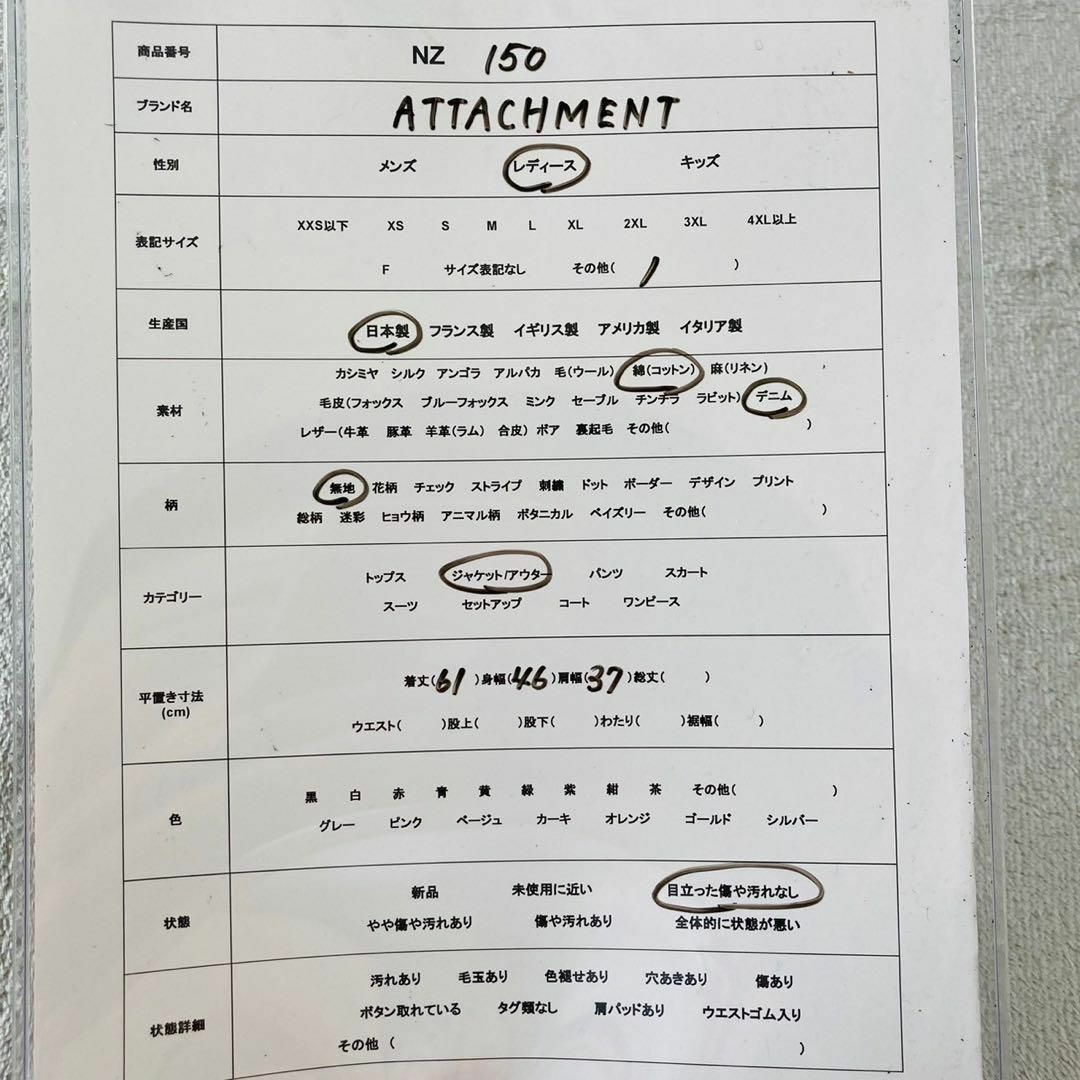 商品番号 NZ 150
ブランド名 ATTACHMENT
性別 メンズ レディース キッズ
XXS以下 XS S M L XL 2XL 3XL 4XL以上
表記サイズ
F サイズ表記なし その他( 1 )
生産国 日本製 フランス製 イギリス製 アメリカ製 イタリア製
カシミヤ シルク アンゴラ アルパカ 毛(ウール) 綿(コットン) 麻(リネン)
素材 毛皮(フォックス ブルーフォックス ミンク セーブル チンチラ ラビット) デニム
レザー(牛革 豚革 羊革(ラム) 合皮) ボア 裏起毛 その他( )
柄 無地 花柄 チェック ストライプ 刺繍 ドット ボーダー デザイン プリント
総柄 迷彩 ヒョウ柄 アニマル柄 ボタニカル ペイズリー その他( )
トップス ジャケット/アウター パンツ スカート
カテゴリー
スーツ セットアップ コート ワンピース
平置き寸法 着丈(61)身幅(46)肩幅(37)総丈( )
(cm)
ウエスト( )股上( )股下( )わたり( )裾幅( )
黒 白 赤 青 黄 緑 紫 紺 茶 その他( )
色 グレー ピンク ベージュ カーキ オレンジ ゴールド シルバー
新品 未使用に近い 目立った傷や汚れなし
状態 やや傷や汚れあり 傷や汚れあり 全体的に状態が悪い
汚れあり 毛玉あり 色褪せあり 穴あきあり 傷あり
状態詳細 ボタン取れている タグ類なし 肩パッドあり ウエストゴム入り
その他 ( )